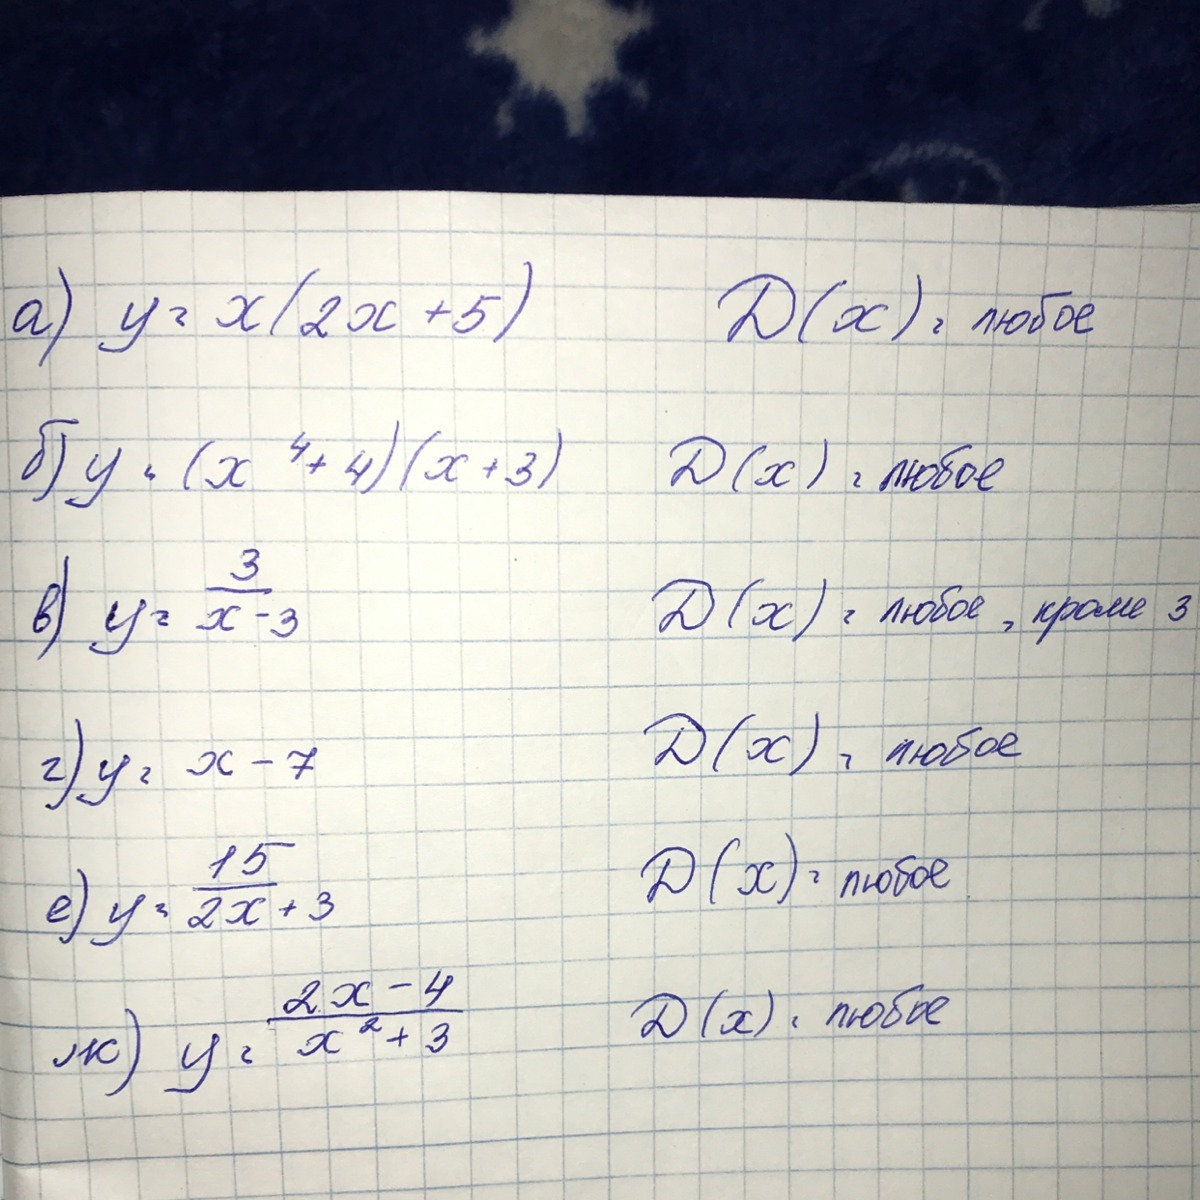 а) y = x(2x+5) D(x) = любое
б) y = (x⁴+4)(x+3) D(x) = любое
в) y = 3/(x-3) D(x) = любое, кроме 3
г) y = x-7 D(x) = любое
е) y = 15/(2x+3) D(x) = любое
ж) y = (2x-4)/(x²+3) D(x) = любое